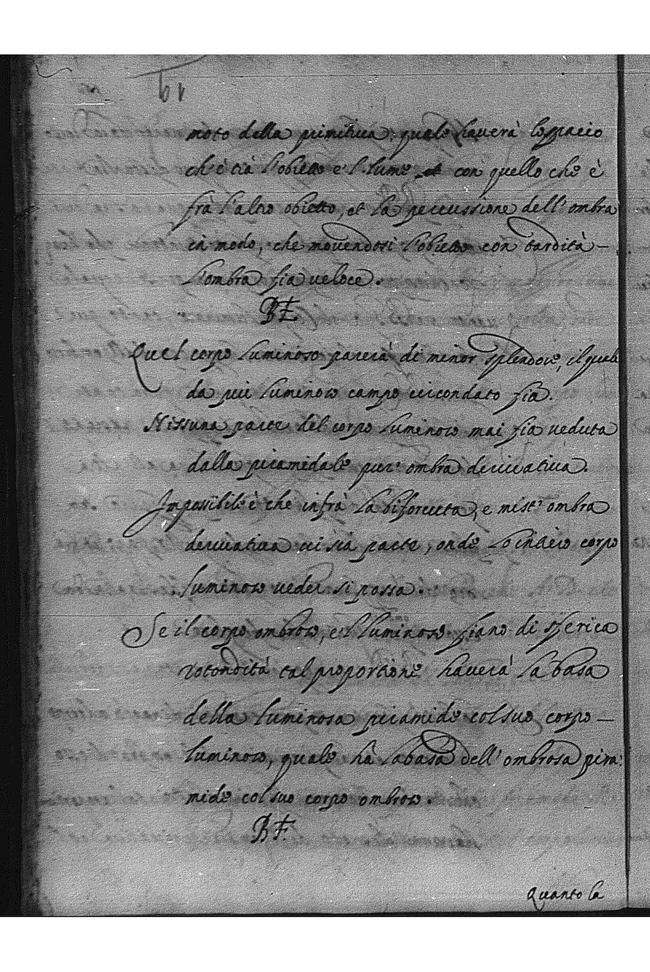 19
moto della primitiua, quale hauerà lo spacio
ch'è trà l'obietto e'l lume, et con quello che è
frà l'altro obietto, et la percussione dell'ombra
in modo, che mouendosi l'obietto con tardità –
l'ombra fia veloce.
Quel corpo luminoso parerà di minor splendore, il quale
da più luminoso campo circondato fia.
Nissuna parte del corpo luminoso mai fia veduta
dalla piramidale pur' ombra deriuatiua.
Impossibile è che infrà la biforcuta, e mist' ombra
deriuatiua ui sia parte, onde lo intiero corpo
luminoso veder si possa.
Se il corpo ombroso, e'l luminoso fiano di sferica
rotondità tal proportione hauerà la basa
della luminosa piramide col suo corpo –
luminoso, quale hà la basa dell'ombrosa pira:
mide col suo corpo ombroso.
Quanto la